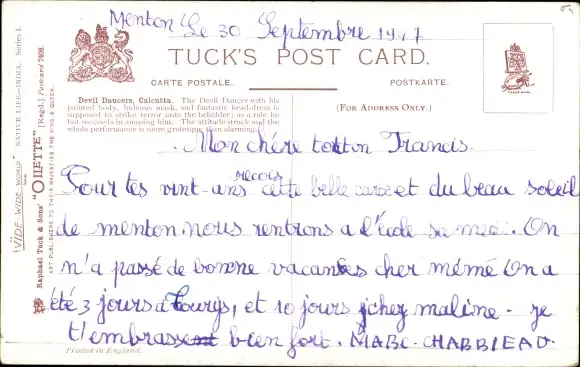 Menton Le 30 Septembre 1947
TUCK'S POST CARD.
CARTE POSTALE.
POSTKARTE.
Devil Dancers, Calcutta. The Devil Dancer with his
painted body, hideous mask, and fantastic head-dress is
supposed to strike terror unto the beholder; as a rule he
but succeeds in amusing him. The attitude struck and the
whole performance is more grotesque than alarming.
(FOR ADDRESS ONLY.)
Mon chére totton Francis.
Pour tes vint-ans recois cette belle carte et du beau soleil
de menton. nous rentrons a l'école sa medi. On
n'a passé de bonne vacances cher mémé On a
été 3 jours a Tourys, et 10 jours chez maline - je
t'embrasse bien fort. MARC-CHARRIEAU.
Printed in England.
"WIDE-WIDE-WORLD" NATIVE LIFE—INDIA. Series I.
Raphael Tuck & Sons' "OILETTE" [Regd.] Postcard 7408.
ART PUBLISHERS TO THEIR MAJESTIES THE KING & QUEEN.